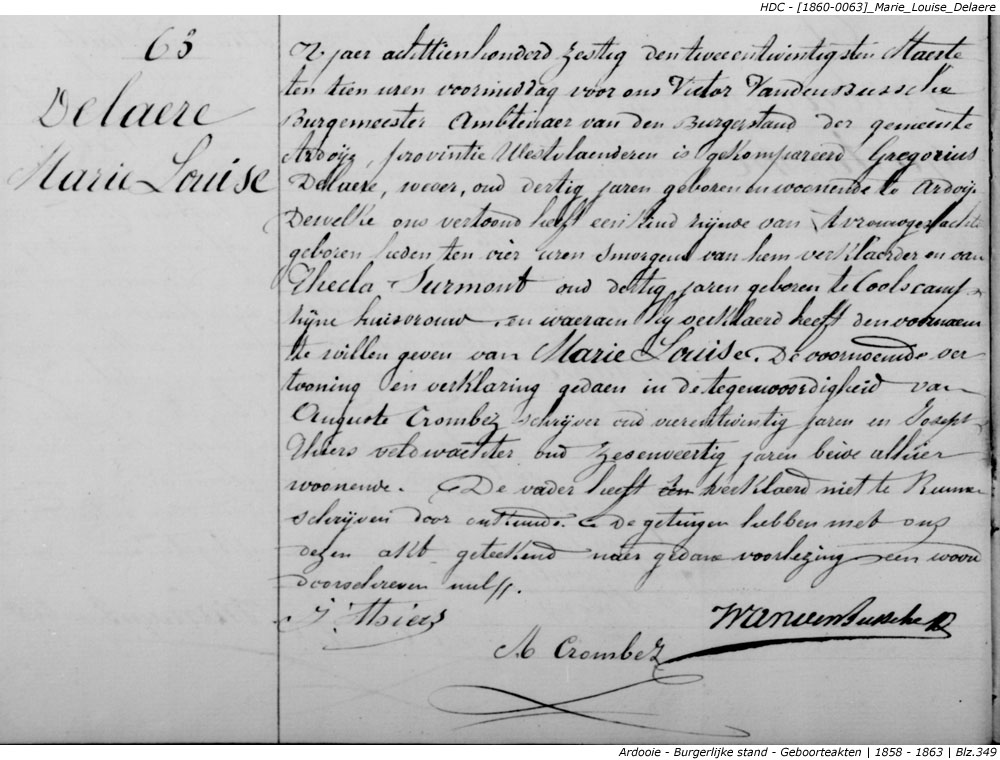 HDC - [1860-0063]_Marie_Louise_Delaere
63
Delaere
Marie Louise
jaer achttienhonderd zestig den tweeentwintigsten Maerte
ten tien uren voormiddag voor ons Victor Vandenbussche
Burgemeester Ambtenaer van den Burgerstand der gemeente
Ardoije, provintie Westvlaenderen is gekompareerd Gregorius
Delaere, wever, oud dertig jaren geboren en woonende te Ardoije
Dewelke ons vertoond heeft een kind zijnde van t vrouwgeslacht
geboren heden ten vier uren smorgens van hem verklaerder en van
Thecla Surmont oud dertig jaren geboren te Coolscamp
zijne huisvrouw, en waeraen hij verklaerd heeft den voornaem
te willen geven van Marie Louise. De voornoemde ver
tooning en verklaring gedaen in de tegenwoordigheid van
Auguste Crombez schrijver oud vierentwintig jaren en Joseph
Thiers veldwachter oud zesenveertig jaren beide alhier
woonende. De vader heeft verklaerd niet te kunnen
schrijven door onkunde. De getuigen hebben met ons
dezen akt geteekend naer gedane voorlezing een woord
doorschreven nul.
J. Thiers
VVandenbussche
A Crombez
Ardooie - Burgerlijke stand - Geboorteakten | 1858 - 1863 | Blz.349